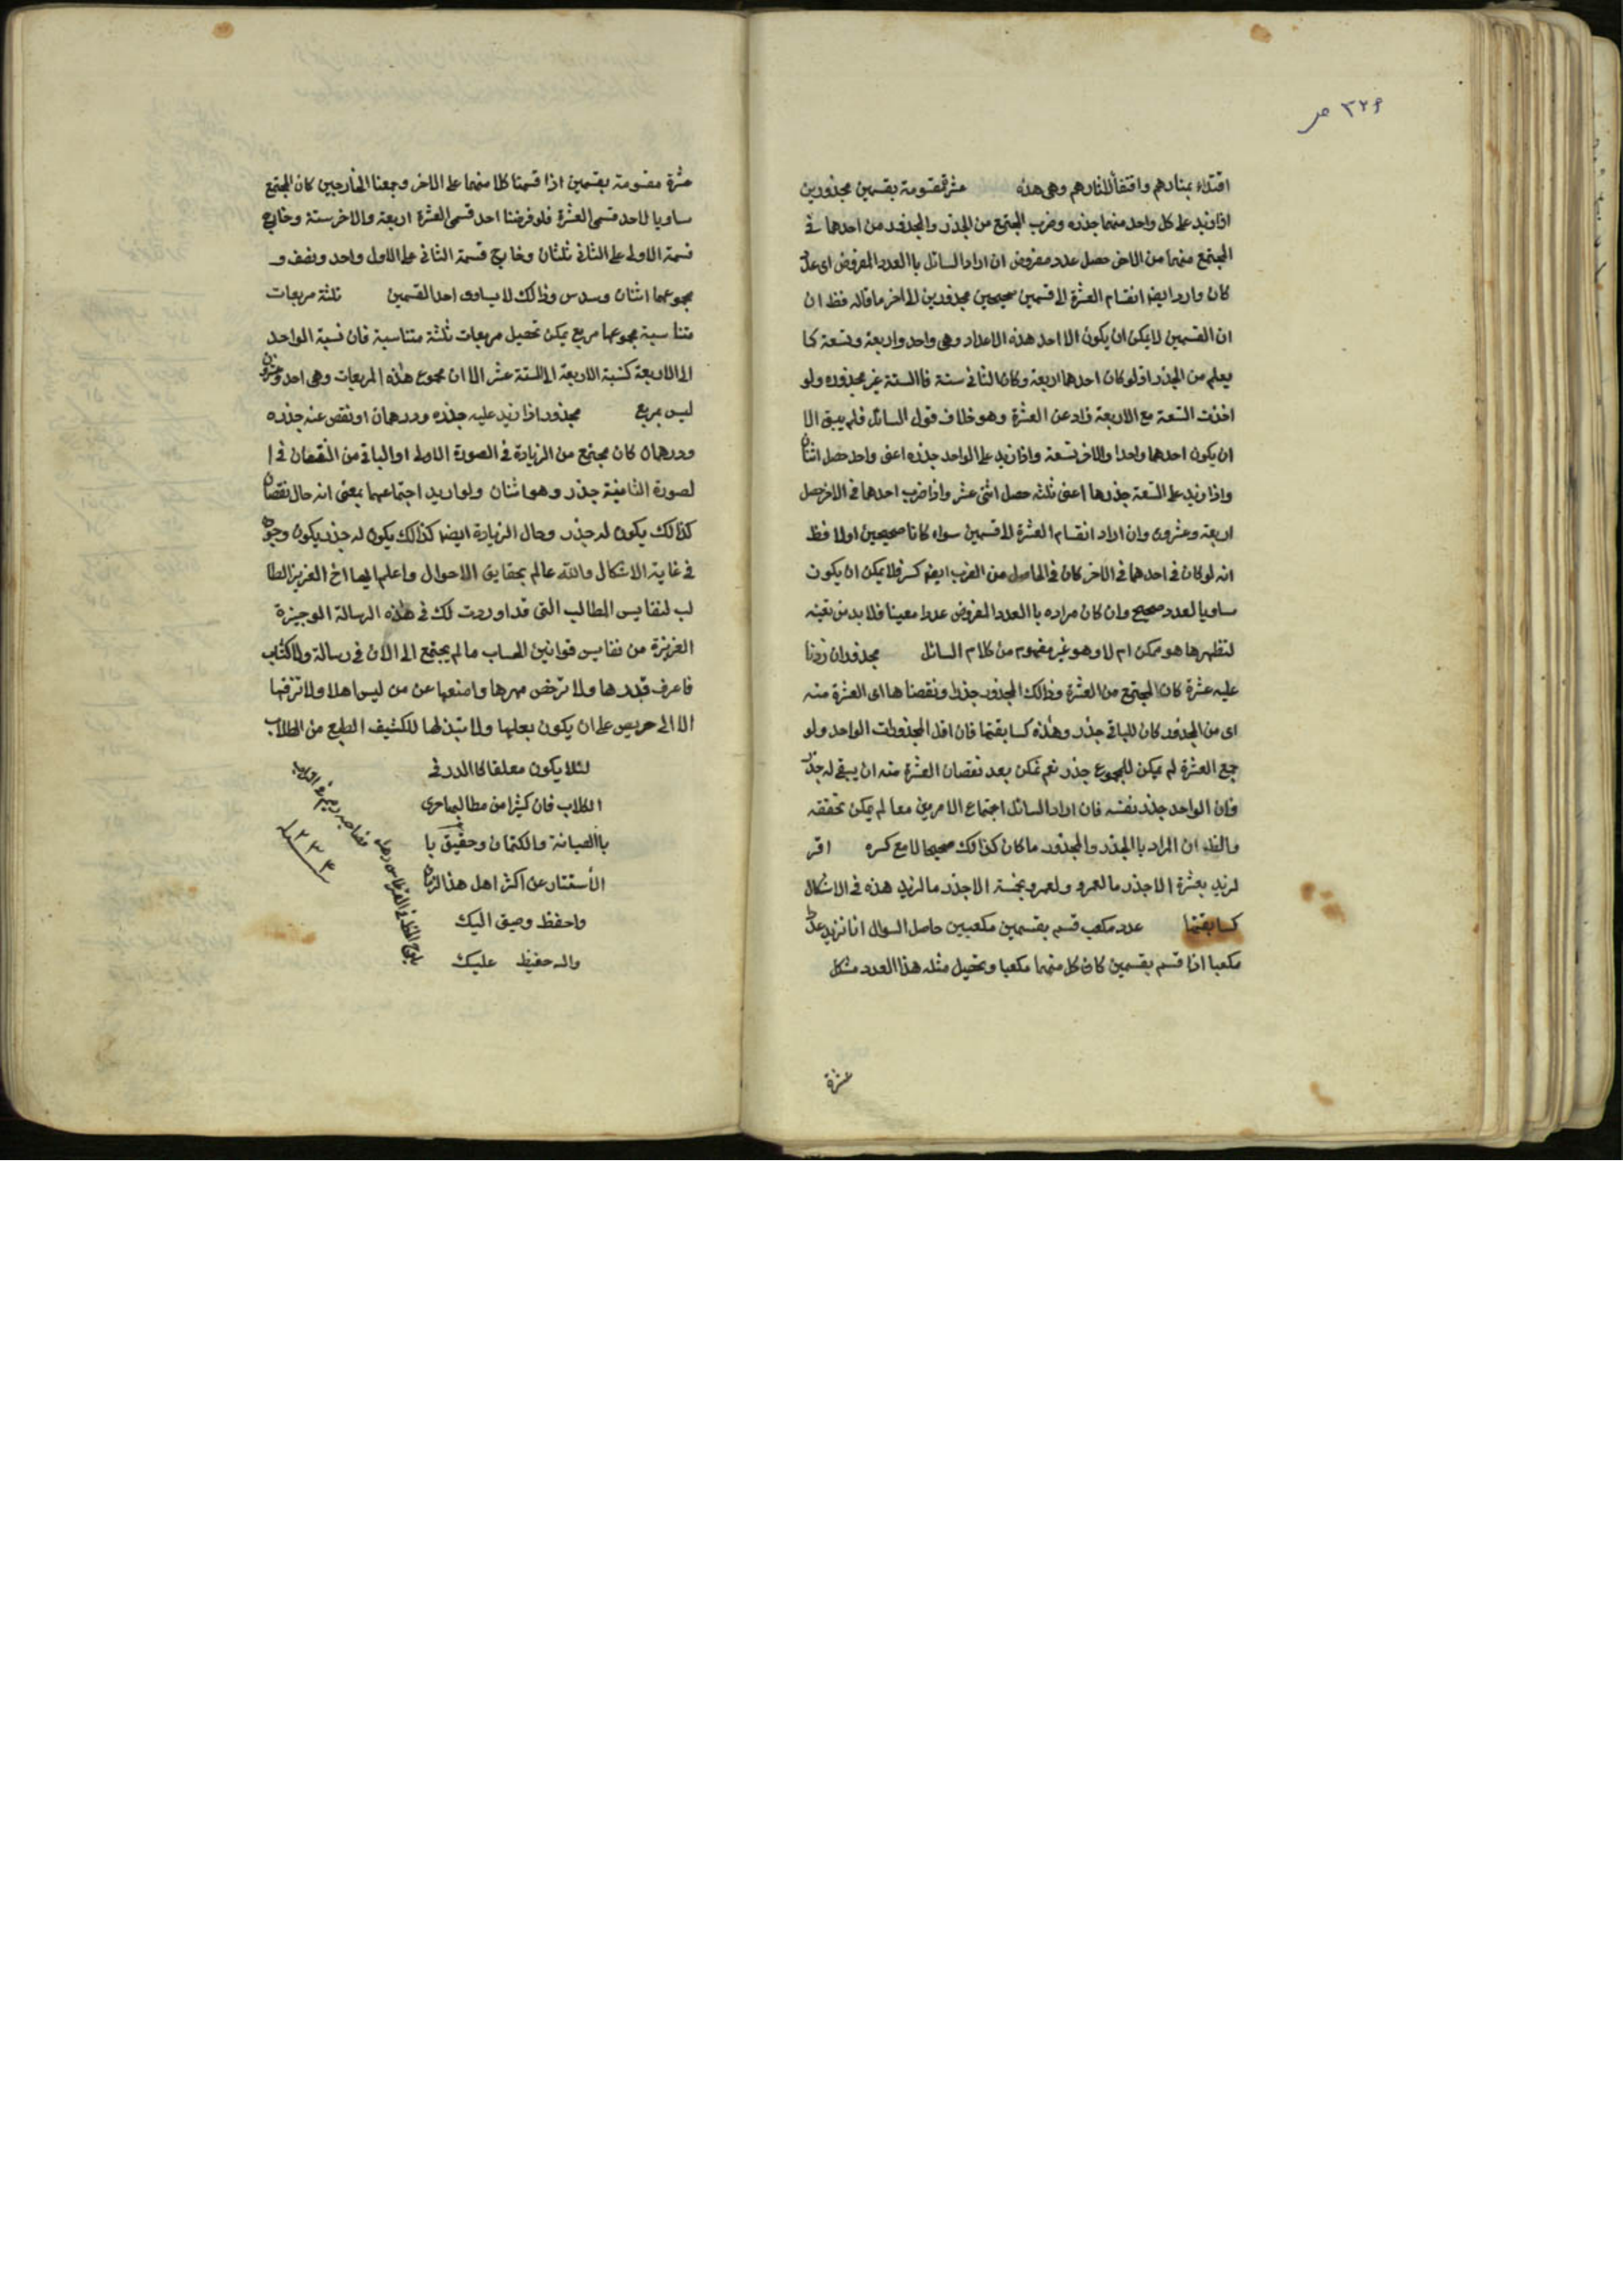 ٣٢٩ ص
اقتداء بمنارهم واقتفأ لاثارهم وهى هذه عشرة مقسومة بقسمين مجذورين
اذا زيد على كل واحد منهما جذره وضرب المجتمع من الجذر والمجذور من احدهما فى
المجتمع منهما من الاخر حصل عدد مفروض ان اراد السائل باالعدد المفروض اى عدد
كان واراد ايضا انقسام العشرة الا قسمين صحيحين مجذورين الى اخر ما قاله فظ ان
ان القسمين لا يمكن ان يكون الا احد هذه الاعداد وهى واحد واربعة وتسعة كا
يعلم من الجذر اذ لو كان احدهما اربعة وكان الثانى ستة فاالستة غير مجذوره ولو
اخذت التسعة مع الاربعة زاد عن العشرة وهو خلاف قول السائل فلم يبق الا
ان يكون احدهما واحدا والاخر تسعة واذا زيد على الواحد جذره اعنى واحد حصل اثنان
واذا زيد على التسعة جذرها اعنى ثلثه حصل اثنى عشر واذا ضرب احدهما فى الاخر حصل
اربعة وعشرون وان اراد انقسام العشرة الا قسمين سواء كانا صحيحين اولا فظ
انه لو كان فى احدهما فى الاخر كان فى الحاصل من الضرب ايضا كسر فلا يمكن ان يكون
مساويا لعدد صحيح وان كان مراده باالعدد المفروض عددا معينا فلا بد من تعينه
لنظهرها هو ممكن ام لا وهو غير مفهوم من كلام السائل مجذور ان زدنا
عليه عشرة كان المجتمع من العشرة وذالك المجذور جذرا ونقصنا ها اى العشرة منه
اى من المجذور كان للباقى جذر وهذه كسابقتها فان اقل المجذورات الواحد ولو
جمع العشرة لم يمكن للمجموع جذر نعم يمكن بعد نقصان العشرة منه ان يبقى له جذر
فان الواحد جذر نفسه فان اراد السائل اجتماع الامرين معا لم يمكن تحققه
والظ ان المراد باالجذر والمجذور ما كان كذالك صحيحا لا مع كسره اقر
لزيد بعشرة الا جذر ما لعمرو ولعمرو بخمسة الا جذر ما لزيد هذه فى الاشكال
كسابقتها عدد مكعب قسم بقسمين مكعبين حاصل السوال انا نريد عدد
مكعبا اذا قسم بقسمين كان كل منهما مكعبا وتحصيل مثله هذا العدد مشكل
عشرة
عشرة مقسومة بقسمين اذا قسمنا كلا منهما على الاخر وجمعنا الخارجين كان المجتمع
مساويا لاحد قسمى العشرة فلو فرضنا احد قسمى العشرة اربعة والاخر ستة وخارج
قسمة الاولى على الثانى ثلثان وخارج قسمة الثانى على الاول واحد ونصف و
مجموعهما اثنان وسدس وذالك لا يساوى احد القسمين ثلثة مربعات
متناسبة مجموعها مربع يمكن تحصيل مربعات ثلثة متناسبة فان نسبة الواحد
الى الاربعة كنسبة الاربعة الى الستة عشر الا ان مجموع هذه المربعات وهى احد وعشرون
ليس بمربع مجذور اذا زيد عليه جذره ودرهمان او نقص عنه جذره
ودرهمان كان مجتمع من الزيادة فى الصورة الاولى او الباقى من النقصان فى ا
لصورة الثامنية جذر وهو اثنان ولو اريد اجتماعهما بمعنى انه حال نقصان
كذالك يكون له جذر وحال الزيادة ايضا كذالك يكون له جذر يكون وجوده
فى غاية الاشكال والله عالم بحقايق الاحوال واعلم ايها اخ العزيز الطا
لب لنفايس المطالب التى قد اوردت لك فى هذه الرسالة الوجيزة
العزيزة من نفايس قوانين الحساب ما لم يجتمع الى الان فى رسالة ولا كتاب
فاعرف قدرها ولا ترخص مهرها وامنعها عن من ليس اهلا ولا تزفها
الا الى حريص على ان يكون بعلها ولا تبذلها للكثيف الطبع من الطلاب
لئلا يكون معلقا كاالدر فى
الكلاب فان كثيرا من مطالبها حرى
باالصيانة والكتمان وحقيق با
الأستتار عن اكثر اهل هذا الزمان
واحفظ وصيتى اليك
والله حفيظ عليك